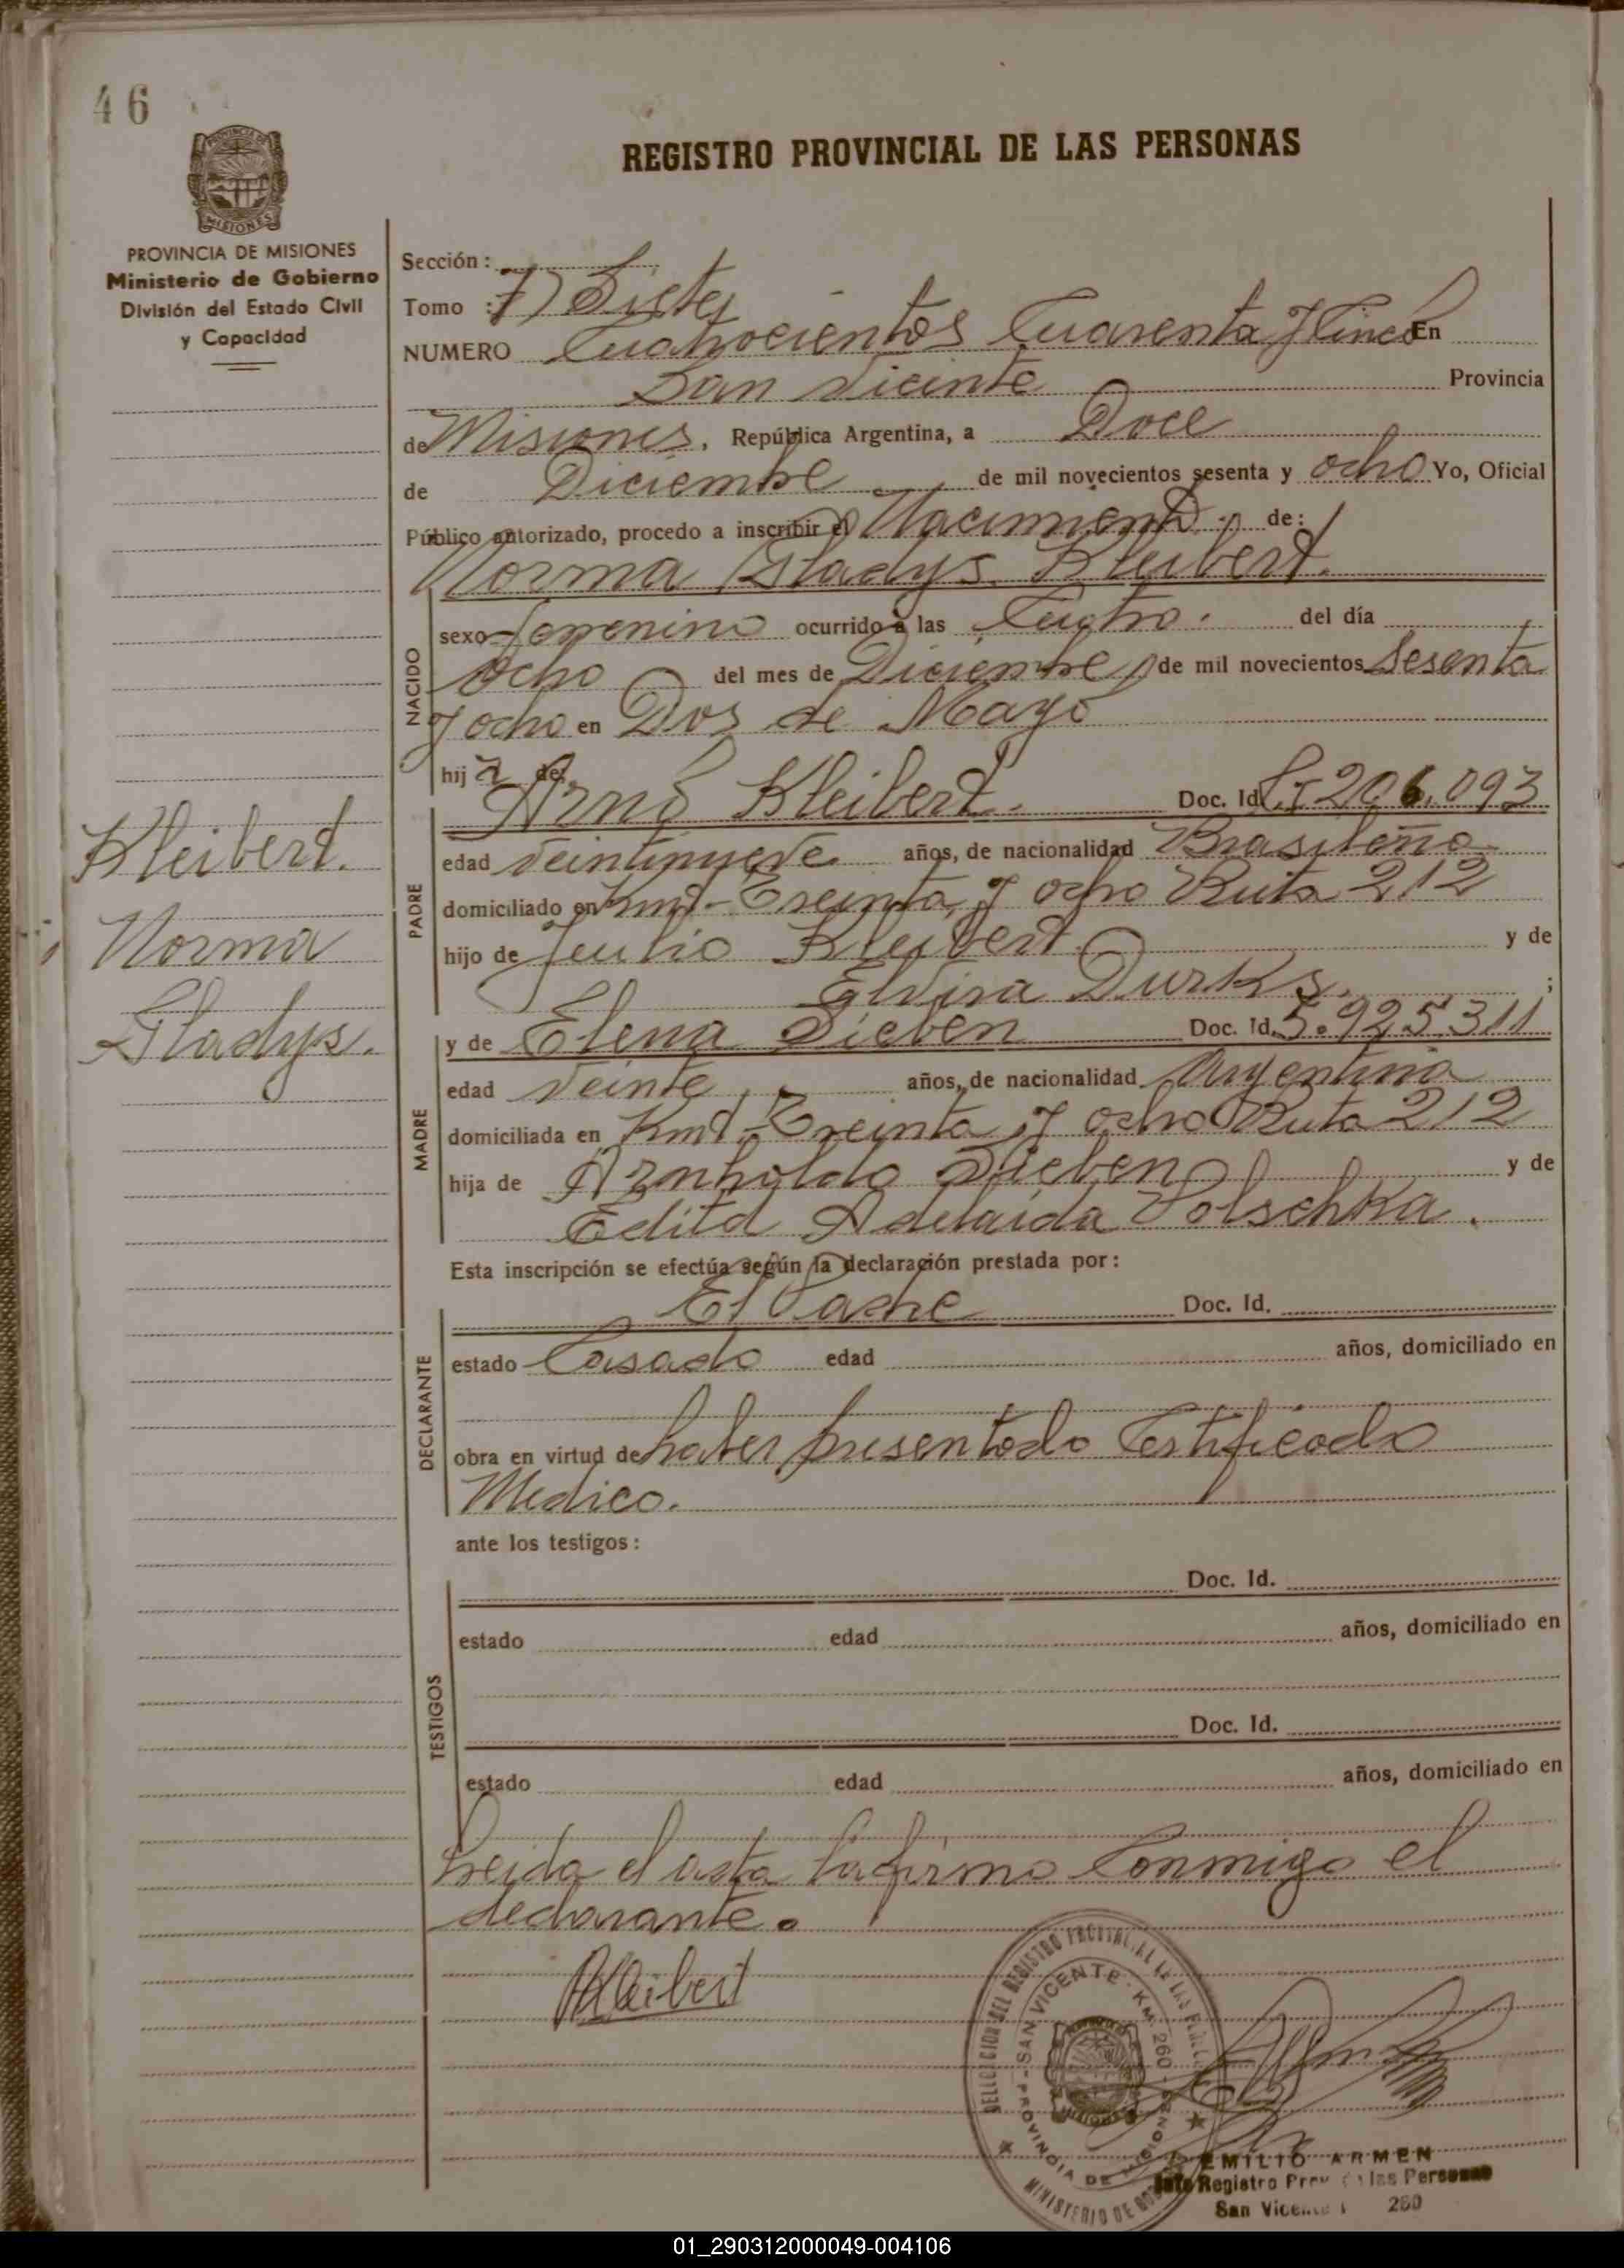 46
PROVINCIA DE MISIONES
REGISTRO PROVINCIAL DE LAS PERSONAS
PROVINCIA DE MISIONES
Ministerio de Gobierno
División del Estado Civil
y Capacidad
Sección :
Tomo : 7) Siete)
NUMERO Cuatrocientos Cuarenta y Cinco En
San Vicente Provincia
de Misiones, República Argentina, a Doce
de Diciembre de mil novecientos sesenta y ocho Yo, Oficial
Público autorizado, procedo a inscribir el Nacimiento de:
Norma Gladys Kleibert.
NACIDO
sexo femenino ocurrido a las Cuatro. del día
ocho del mes de Diciembre de mil novecientos Sesenta
y ocho en Dos de Mayo
hija de:
PADRE
Arno Kleibert. Doc. Id. 206.093
edad veintinueve años, de nacionalidad Brasileña
domiciliado en Kmt-Treinta y ocho Ruta 212
hijo de Julio Kleibert y de
Elvira Durks. ;
MADRE
y de Elena Dieben Doc. Id. 5.925.311
edad veinte años, de nacionalidad Argentina
domiciliada en Kmt-Treinta y ocho Ruta 212
hija de Arnholdo Dieben y de
Edita Adelaida Polschka.
Kleibert.
Norma
Gladys.
Esta inscripción se efectúa según la declaración prestada por:
DECLARANTE
El Padre Doc. Id.
estado Casado edad años, domiciliado en
obra en virtud de haber presentado Certificado
Medico.
ante los testigos:
TESTIGOS
Doc. Id.
estado edad años, domiciliado en
Doc. Id.
estado edad años, domiciliado en
Leida el acta la firma Conmigo el
declarante.
AKleibert
SAN VICENTE - KM. 260 - PROVINCIA DE MISIONES
EMILIO ARMEN
Jefe Registro Prov de las Personas
San Vicente 260
01_290312000049-004106